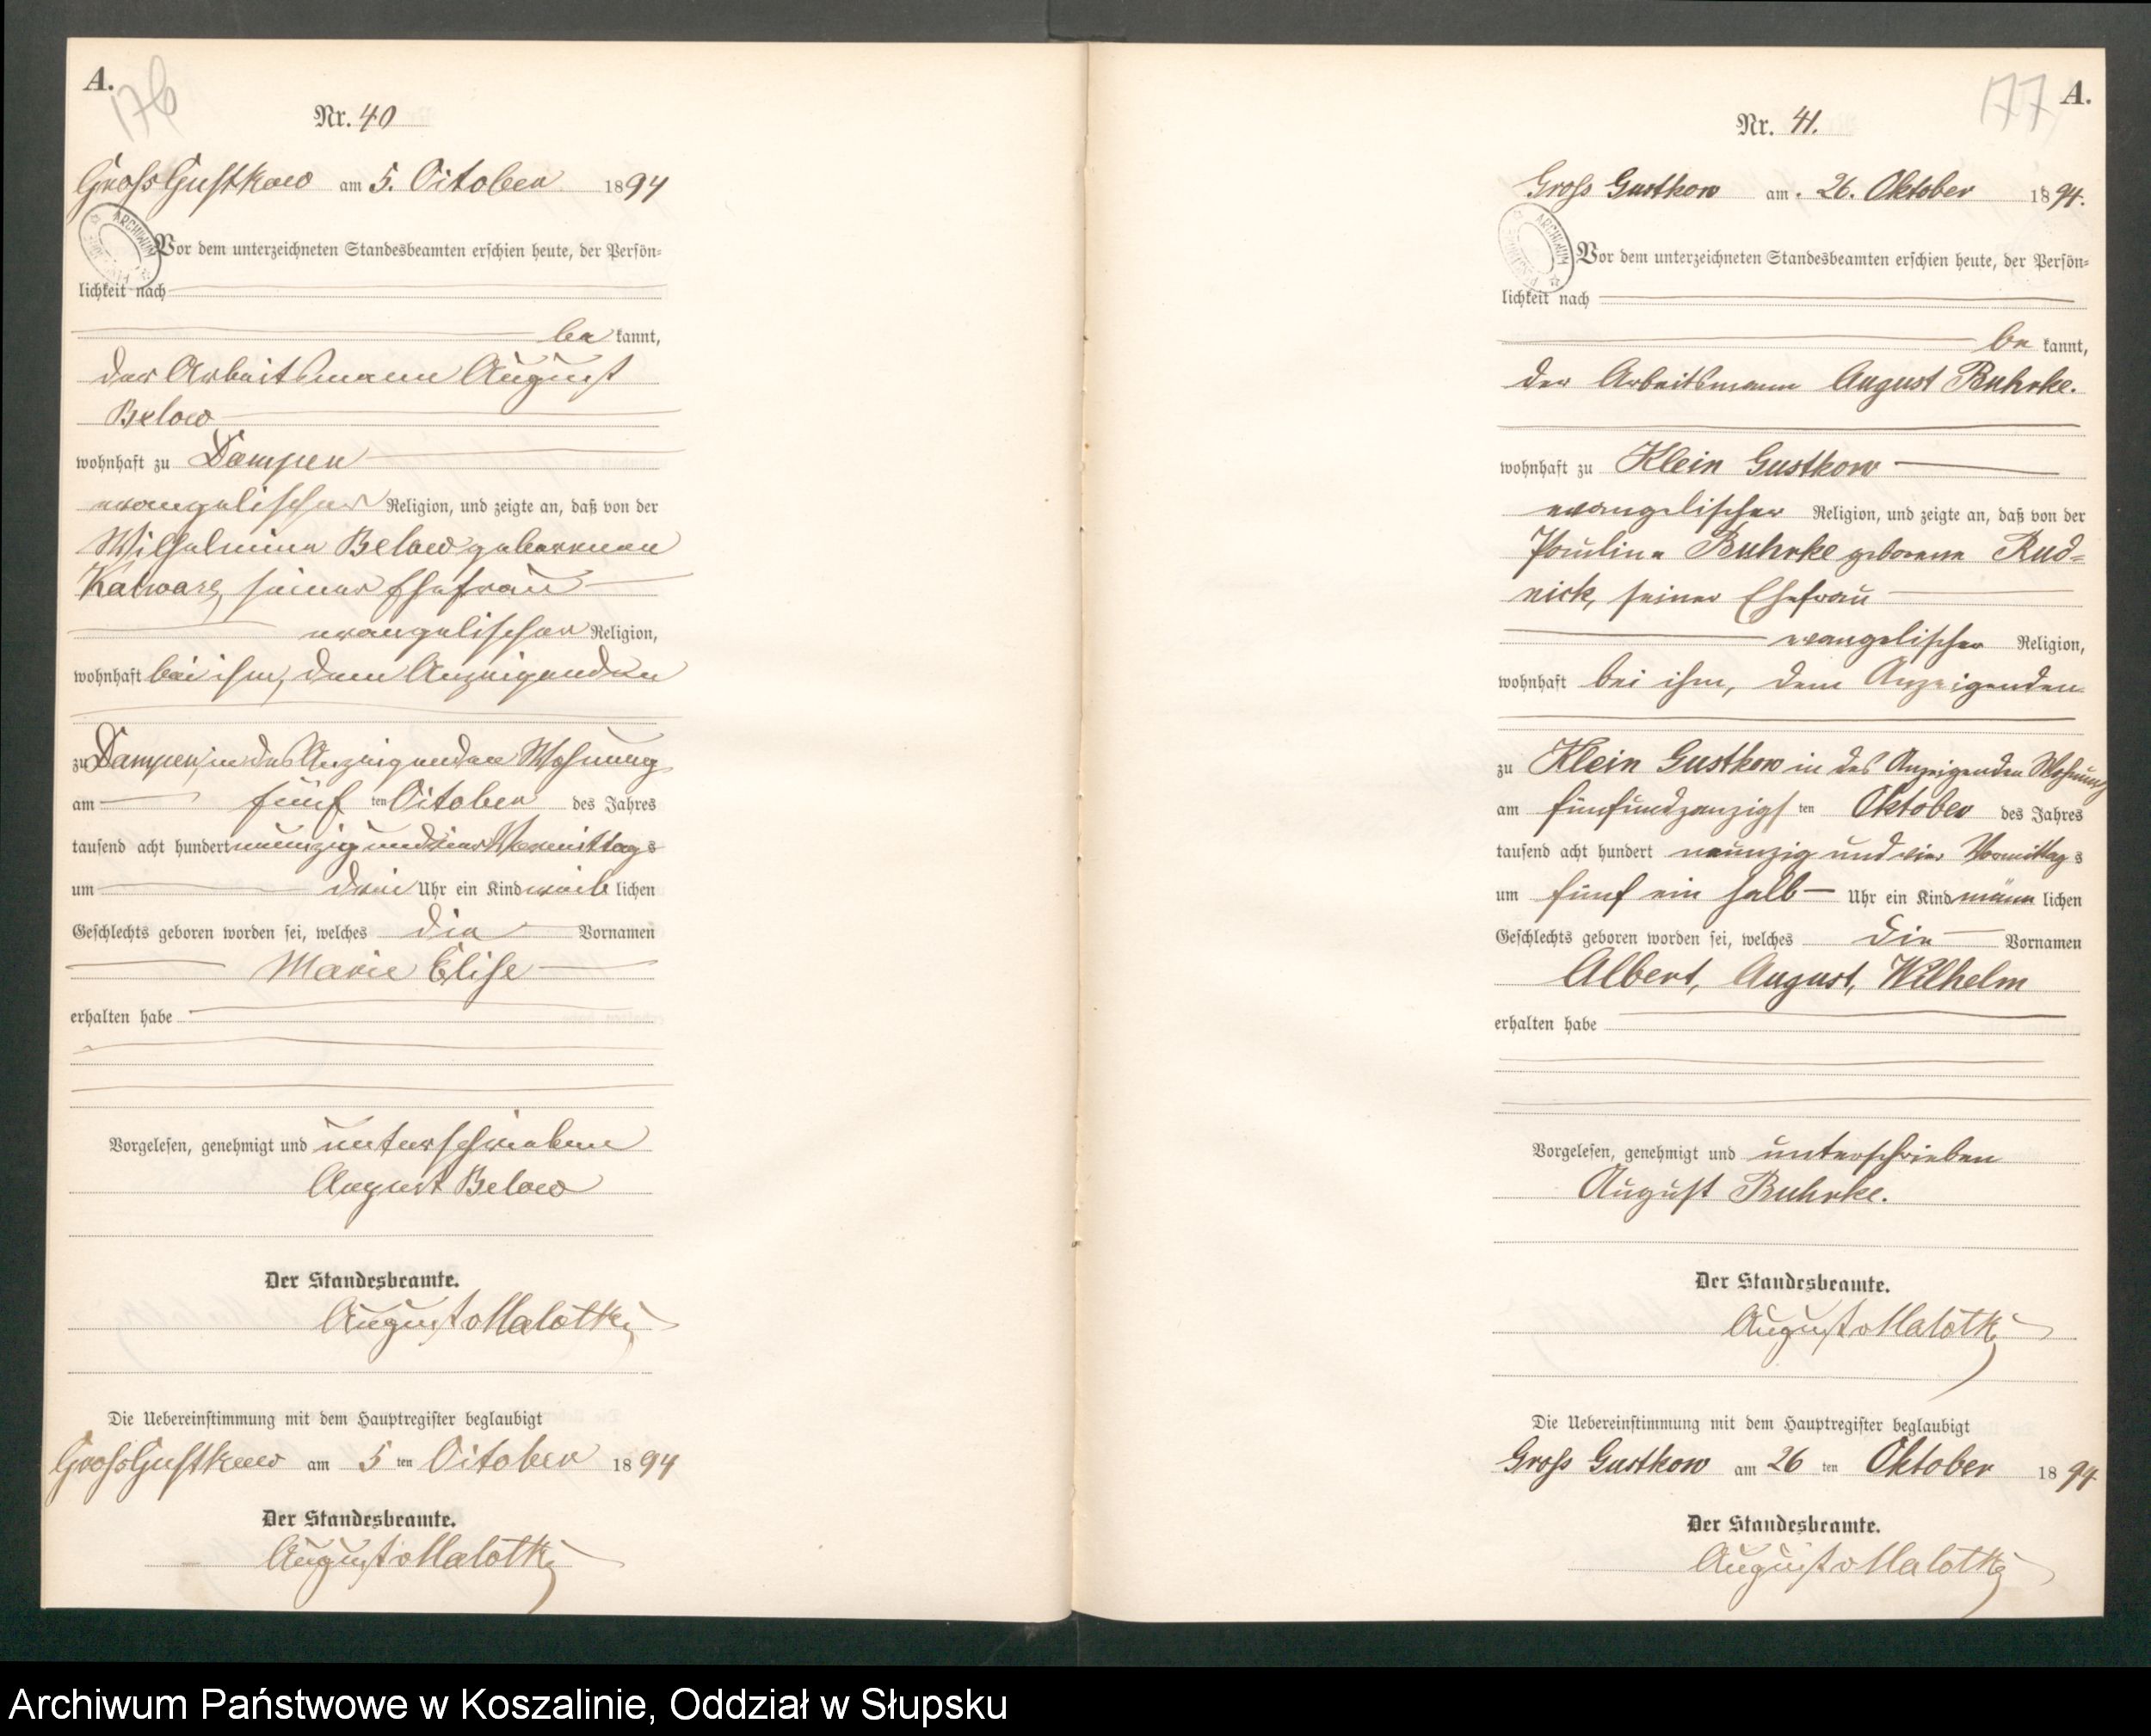 A.
176
Nr. 40
Gross Gustkow am 5. October 1894
ARCHIWUM
Vor dem unterzeichneten Standesbeamten erschien heute, der Persön-
lichkeit nach
be kannt,
der Arbeitsmann August
Below
wohnhaft zu Dampen
evangelischer Religion, und zeigte an, daß von der
Wilhelmine Below geborenen
seiner Ehefrau
evangelischer Religion,
wohnhaft bei ihm, dem Anzeigenden
zu Dampen, in des Anzeigenden Wohnung
am fünf ten October des Jahres
tausend acht hundert neunzig und vier Vormittags
um drei Uhr ein Kind weib lichen
Geschlechts geboren worden sei, welches die Vornamen
Marie Elise
erhalten habe
Vorgelesen, genehmigt und unterschrieben
August Below
Der Standesbeamte.
August v Malottki
Die Uebereinstimmung mit dem Hauptregister beglaubigt
Gross Gustkow am 5 ten October 1894
Der Standesbeamte.
August v Malottki
177
A.
Nr. 41.
Gross Gustkow am 26. Oktober 1894.
ARCHIWUM
Vor dem unterzeichneten Standesbeamten erschien heute, der Persön-
lichkeit nach
be kannt,
der Arbeitsmann August Buhrke.
wohnhaft zu Klein Gustkow
evangelischer Religion, und zeigte an, daß von der
Pauline Buhrke geborene Rud-
nick, seiner Ehefrau
evangelischer Religion,
wohnhaft bei ihm, dem Anzeigenden
zu Klein Gustkow in des Anzeigenden Wohnung
am fünfundzanzigs ten Oktober des Jahres
tausend acht hundert neunzig und vier Vormittag s
um fünf ein halb Uhr ein Kind männ lichen
Geschlechts geboren worden sei, welches die Vornamen
Albert, August, Wilhelm
erhalten habe
Vorgelesen, genehmigt und unterschrieben
August Buhrke.
Der Standesbeamte.
August v Malottki
Die Uebereinstimmung mit dem Hauptregister beglaubigt
Gross Gustkow am 26 ten Oktober 1894
Der Standesbeamte.
August v Malottki
Archiwum Państwowe w Koszalinie, Oddział w Słupsku